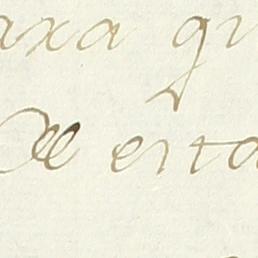 axa qu
De esta